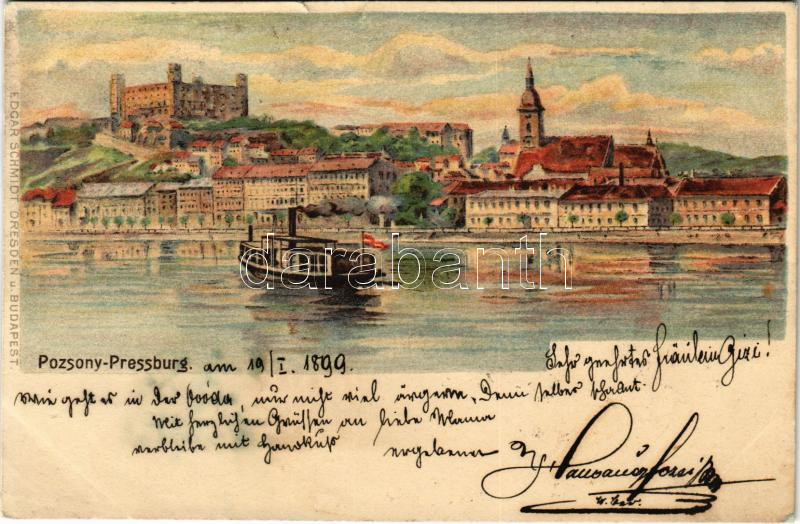 EDGAR SCHMIDT, DRESDEN u. BUDAPEST.
darabanth
Pozsony-Pressburg. am 19/I. 1899.
Sehr geehrtes Fräulein Gizi!
Wie geht es in der nur nicht viel ärgern, Denn selber schadet.
Mit herzlichen Grüssen an liebe Mama
verbleibe mit Handkuß ergebener